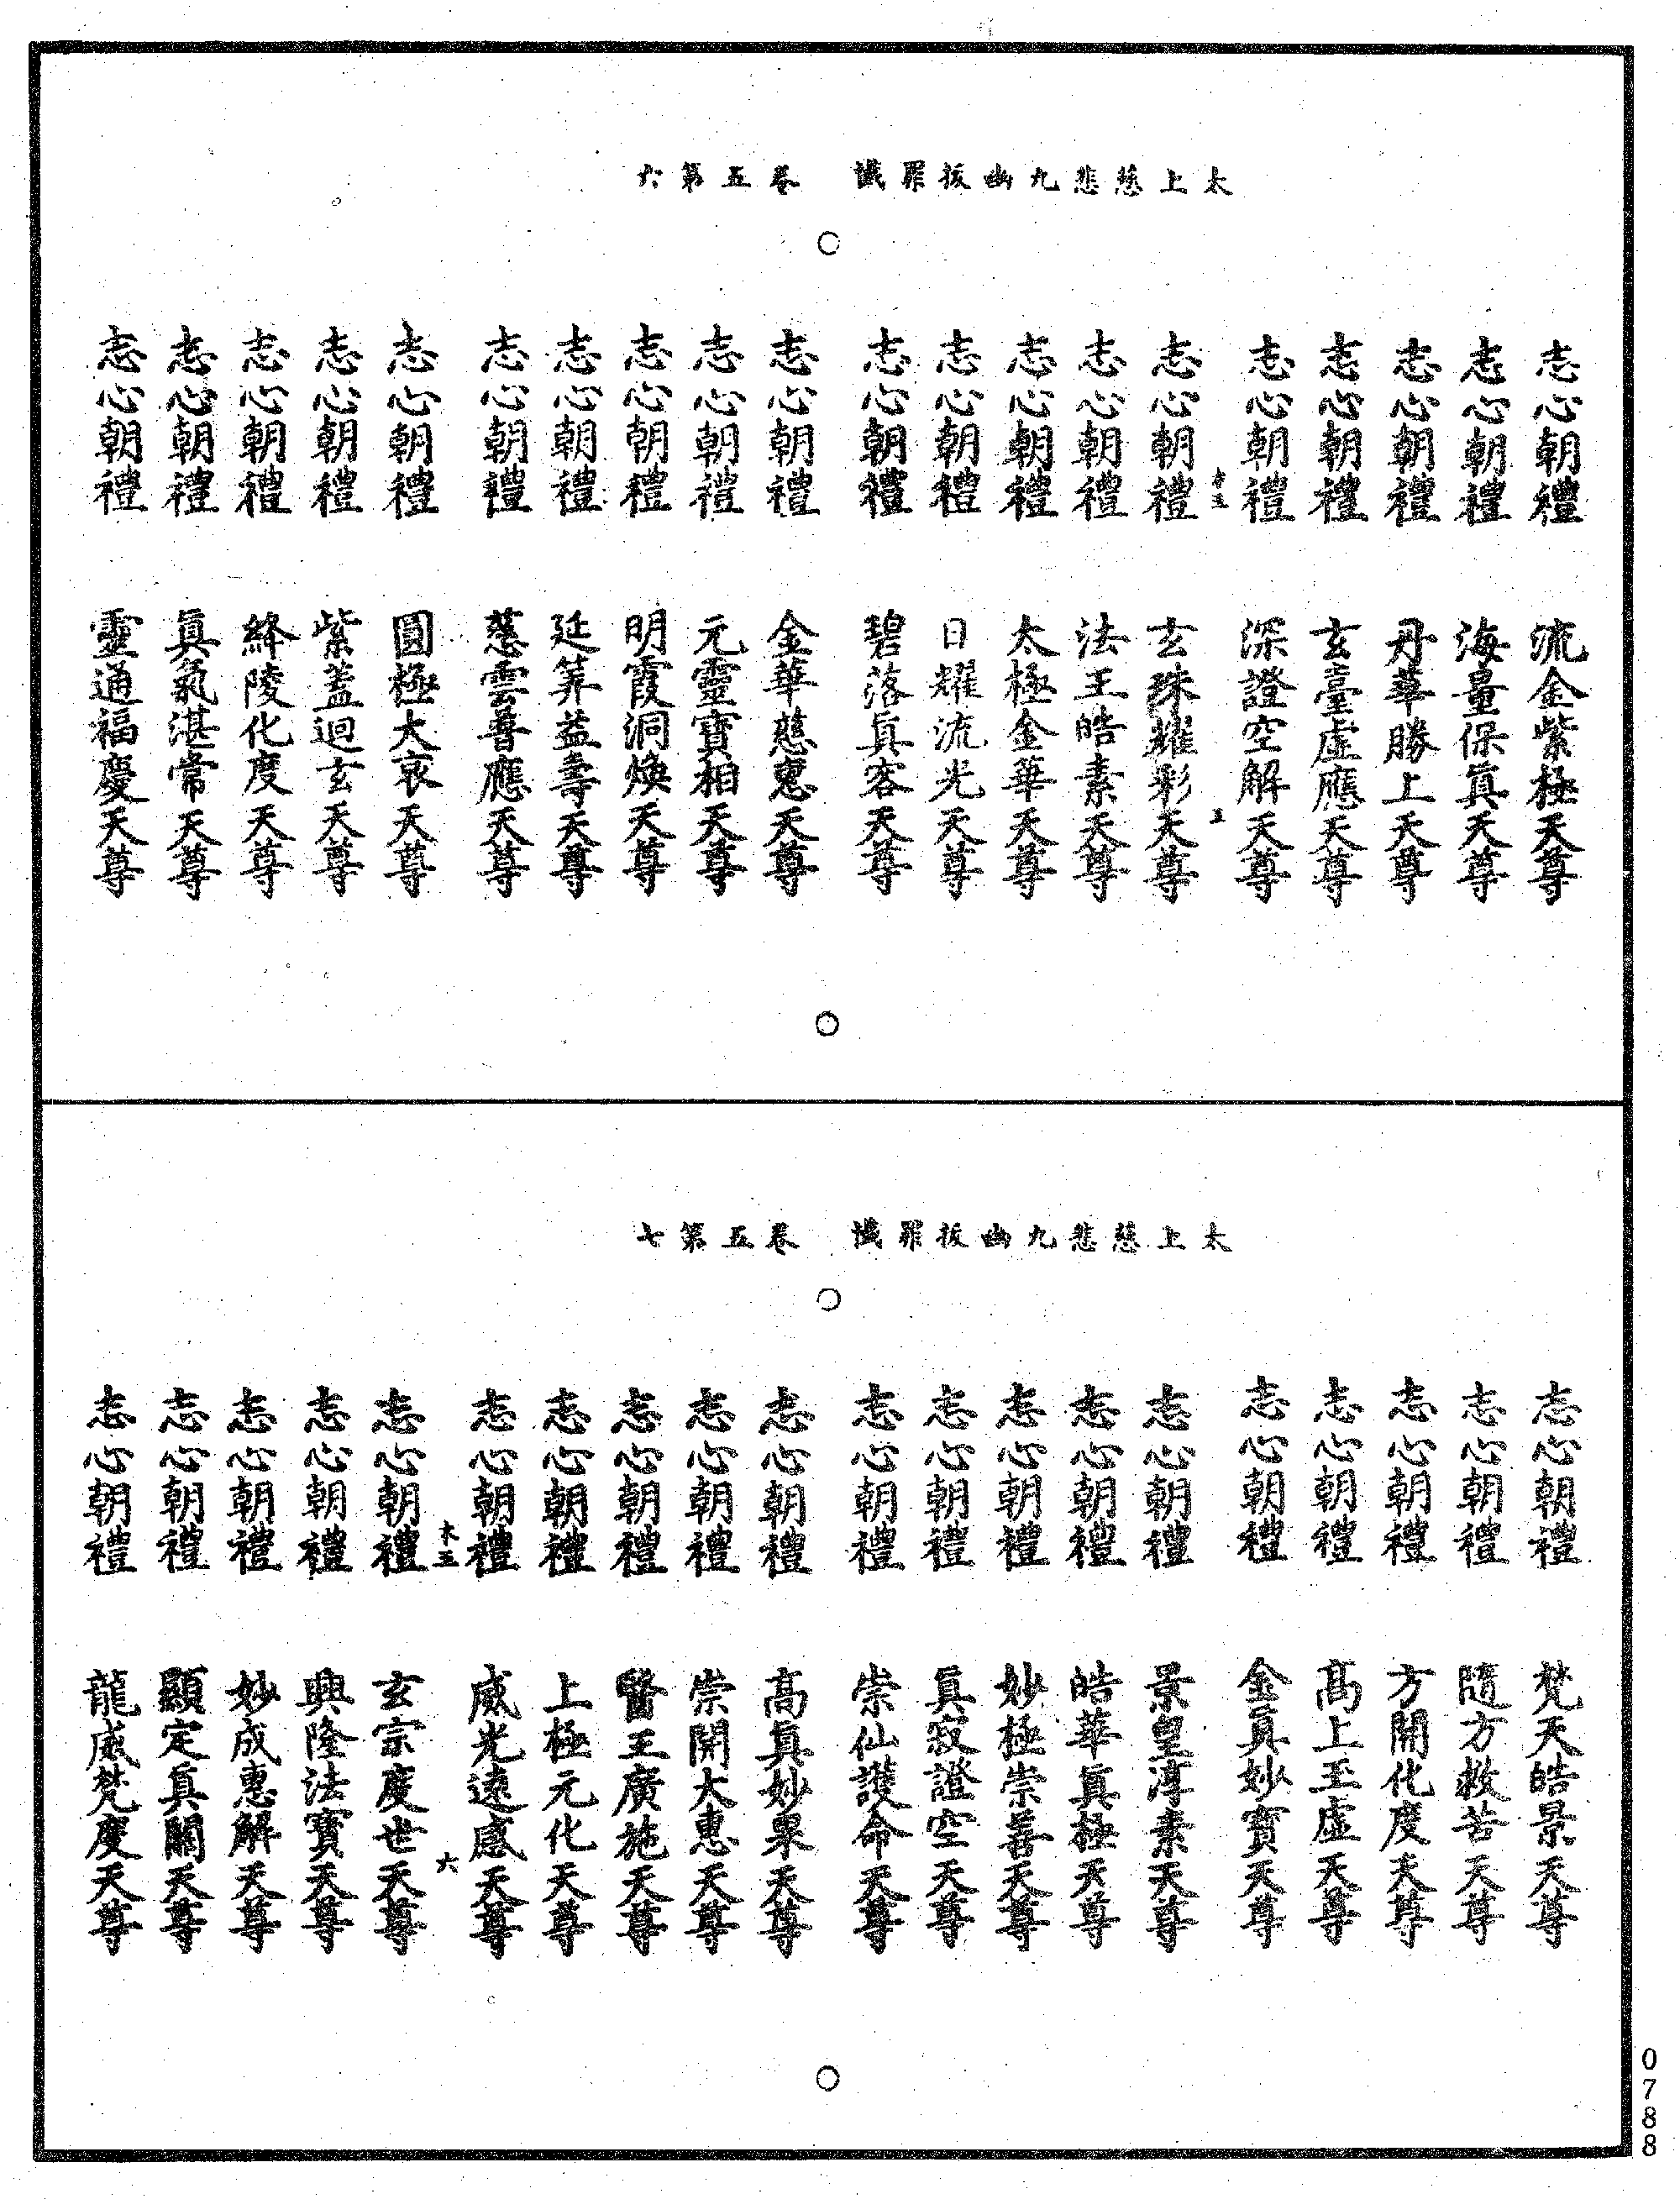 太上慈悲九幽拔罪懺　卷五第六
志心朝禮　流金紫極天尊
志心朝禮　海量保眞天尊
志心朝禮　丹華勝上天尊
志心朝禮　玄臺虛應天尊
志心朝禮　深證空解天尊
志心朝禮　玄珠耀彩天尊
志心朝禮　法王皓素天尊
志心朝禮　太極金華天尊
志心朝禮　日耀流光天尊
志心朝禮　碧落眞容天尊
志心朝禮　金華慈惠天尊
志心朝禮　元靈寶相天尊
志心朝禮　明霞洞煥天尊
志心朝禮　延筭益壽天尊
志心朝禮　慈雲普應天尊
志心朝禮　圓極大哀天尊
志心朝禮　紫蓋迴玄天尊
志心朝禮　絳陵化度天尊
志心朝禮　眞氣湛常天尊
志心朝禮　靈通福慶天尊
太上慈悲九幽拔罪懺　卷五第七
志心朝禮　梵天皓景天尊
志心朝禮　隨方救苦天尊
志心朝禮　方開化度天尊
志心朝禮　髙上玉虛天尊
志心朝禮　金眞妙寶天尊
志心朝禮　景皇淳素天尊
志心朝禮　皓華眞極天尊
志心朝禮　妙極崇善天尊
志心朝禮　眞寂證空天尊
志心朝禮　崇仙護命天尊
志心朝禮　高眞妙果天尊
志心朝禮　崇開大惠天尊
志心朝禮　醫王廣施天尊
志心朝禮　上極元化天尊
志心朝禮　威光遠感天尊
志心朝禮　玄宗度世天尊
志心朝禮　興隆法寶天尊
志心朝禮　妙成惠解天尊
志心朝禮　顯定眞關天尊
志心朝禮　龍威梵度天尊
0788